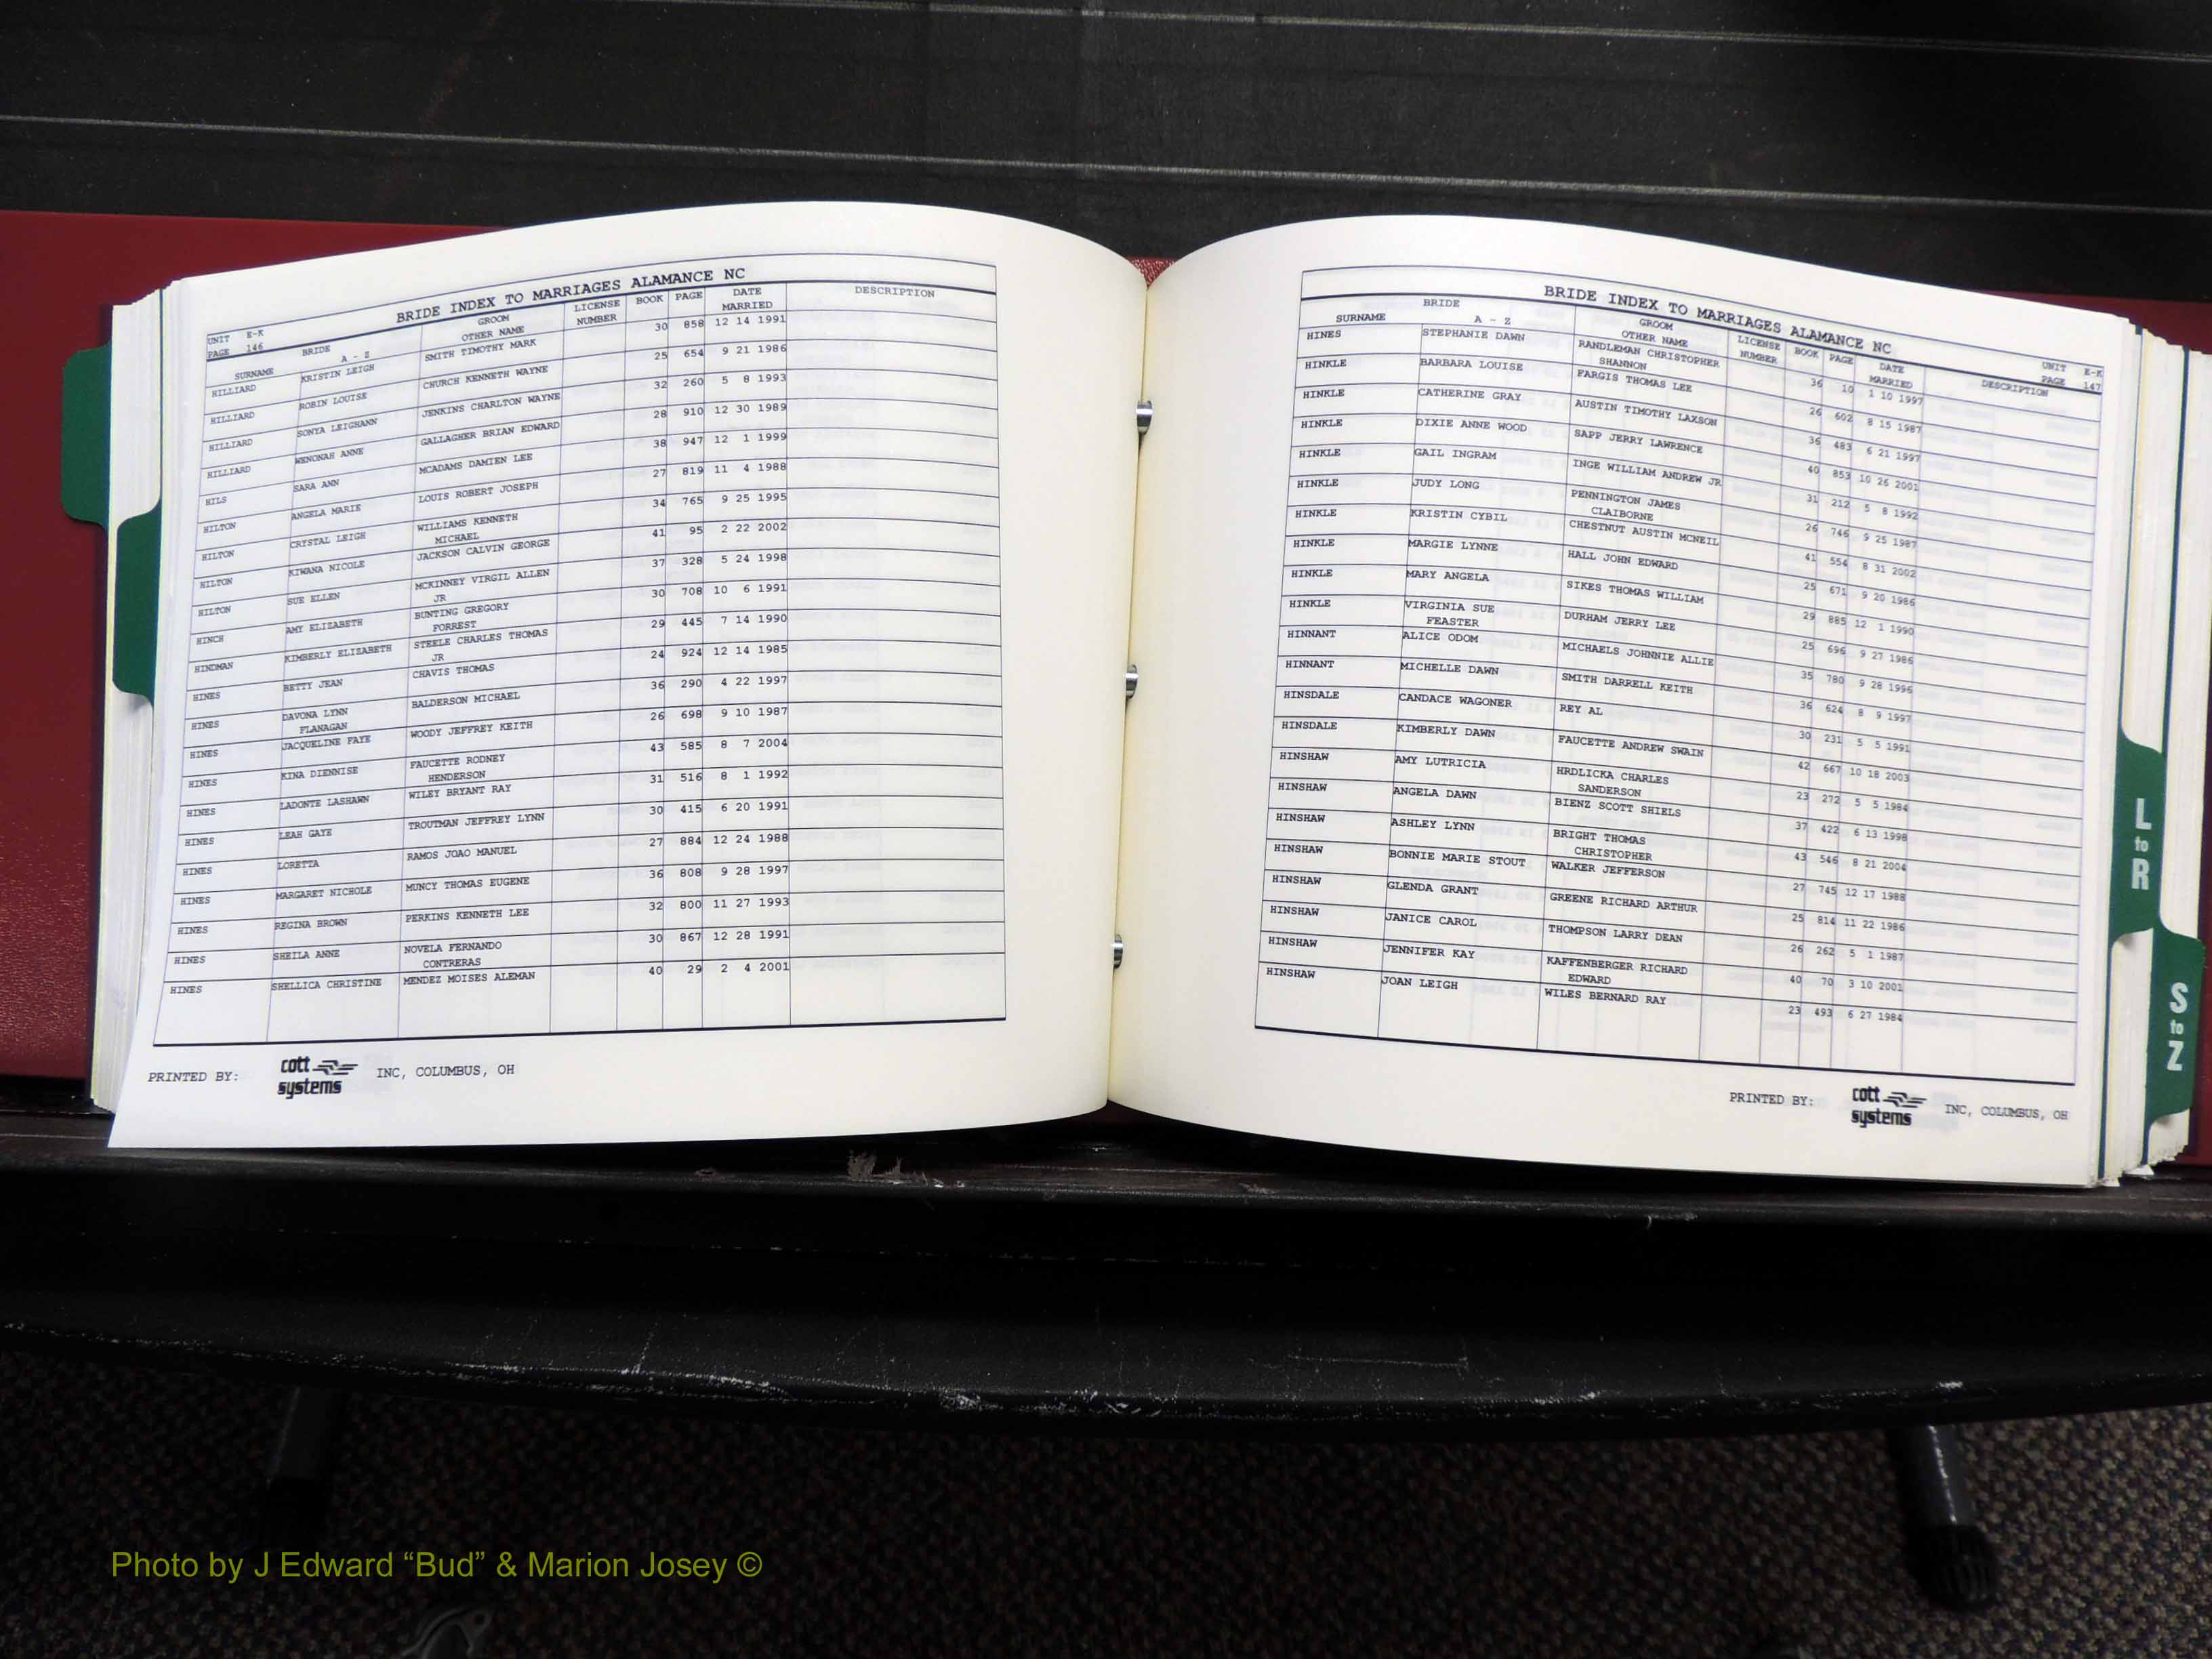 UNIT E-K
PAGE 146
BRIDE INDEX TO MARRIAGES ALAMANCE NC
SURNAME BRIDE A - Z GROOM OTHER NAME LICENSE NUMBER BOOK PAGE DATE MARRIED DESCRIPTION
HILLIARD KRISTIN LEIGH SMITH TIMOTHY MARK 30 858 12 14 1991
HILLIARD ROBIN LOUISE CHURCH KENNETH WAYNE 25 654 9 21 1986
HILLIARD SONYA LEIGHANN JENKINS CHARLTON WAYNE 32 260 5 8 1993
HILLIARD WENONAH ANNE GALLAGHER BRIAN EDWARD 28 910 12 30 1989
HILS SARA ANN MCADAMS DAMIEN LEE 38 947 12 1 1999
HILTON ANGELA MARIE LOUIS ROBERT JOSEPH 27 819 11 4 1988
HILTON CRYSTAL LEIGH WILLIAMS KENNETH 34 765 9 25 1995
MICHAEL
HILTON KIWANA NICOLE JACKSON CALVIN GEORGE 41 95 2 22 2002
HILTON SUE ELLEN MCKINNEY VIRGIL ALLEN 37 328 5 24 1998
JR
HINCH AMY ELIZABETH BUNTING GREGORY 30 708 10 6 1991
FORREST
HINDMAN KIMBERLY ELIZABETH STEELE CHARLES THOMAS 29 445 7 14 1990
JR
HINES BETTY JEAN CHAVIS THOMAS 24 924 12 14 1985
HINES DAVONA LYNN BALDERSON MICHAEL 36 290 4 22 1997
FLANAGAN
HINES JACQUELINE FAYE WOODY JEFFREY KEITH 26 698 9 10 1987
HINES KINA DIENNISE FAUCETTE RODNEY 43 585 8 7 2004
HENDERSON
HINES LADONTE LASHAWN WILEY BRYANT RAY 31 516 8 1 1992
HINES LEAH GAYE TROUTMAN JEFFREY LYNN 30 415 6 20 1991
HINES LORETTA RAMOS JOAO MANUEL 27 884 12 24 1988
HINES MARGARET NICHOLE MUNCY THOMAS EUGENE 36 808 9 28 1997
HINES REGINA BROWN PERKINS KENNETH LEE 32 800 11 27 1993
HINES SHEILA ANNE NOVELA FERNANDO 30 867 12 28 1991
CONTRERAS
HINES SHELLICA CHRISTINE MENDEZ MOISES ALEMAN 40 29 2 4 2001
PRINTED BY: cott systems INC, COLUMBUS, OH
BRIDE INDEX TO MARRIAGES ALAMANCE NC
UNIT E-K
PAGE 147
SURNAME BRIDE A - Z GROOM OTHER NAME LICENSE NUMBER BOOK PAGE DATE MARRIED DESCRIPTION
HINES STEPHANIE DAWN RANDLEMAN CHRISTOPHER 36 10 1 10 1997
SHANNON
HINKLE BARBARA LOUISE FARGIS THOMAS LEE 26 602 8 15 1987
HINKLE CATHERINE GRAY AUSTIN TIMOTHY LAXSON 36 483 6 21 1997
HINKLE DIXIE ANNE WOOD SAPP JERRY LAWRENCE 40 853 10 26 2001
HINKLE GAIL INGRAM INGE WILLIAM ANDREW JR 31 212 5 8 1992
HINKLE JUDY LONG PENNINGTON JAMES 26 746 9 25 1987
CLAIBORNE
HINKLE KRISTIN CYBIL CHESTNUT AUSTIN MCNEIL 41 554 8 31 2002
HINKLE MARGIE LYNNE HALL JOHN EDWARD 25 671 9 20 1986
HINKLE MARY ANGELA SIKES THOMAS WILLIAM 29 885 12 1 1990
HINKLE VIRGINIA SUE DURHAM JERRY LEE 25 696 9 27 1986
FEASTER
HINNANT ALICE ODOM MICHAELS JOHNNIE ALLIE 35 780 9 28 1996
HINNANT MICHELLE DAWN SMITH DARRELL KEITH 36 624 8 9 1997
HINSDALE CANDACE WAGONER REY AL 30 231 5 5 1991
HINSDALE KIMBERLY DAWN FAUCETTE ANDREW SWAIN 42 667 10 18 2003
HINSHAW AMY LUTRICIA HRDLICKA CHARLES 23 272 5 5 1984
SANDERSON
HINSHAW ANGELA DAWN BIENZ SCOTT SHIELS 37 422 6 13 1998
HINSHAW ASHLEY LYNN BRIGHT THOMAS 43 546 8 21 2004
CHRISTOPHER
HINSHAW BONNIE MARIE STOUT WALKER JEFFERSON 27 745 12 17 1988
HINSHAW GLENDA GRANT GREENE RICHARD ARTHUR 25 814 11 22 1986
HINSHAW JANICE CAROL THOMPSON LARRY DEAN 26 262 5 1 1987
HINSHAW JENNIFER KAY KAFFENBERGER RICHARD 40 70 3 10 2001
EDWARD
HINSHAW JOAN LEIGH WILES BERNARD RAY 23 493 6 27 1984
PRINTED BY: cott systems INC, COLUMBUS, OH
L to R
S to Z
Photo by J Edward “Bud” & Marion Josey ©